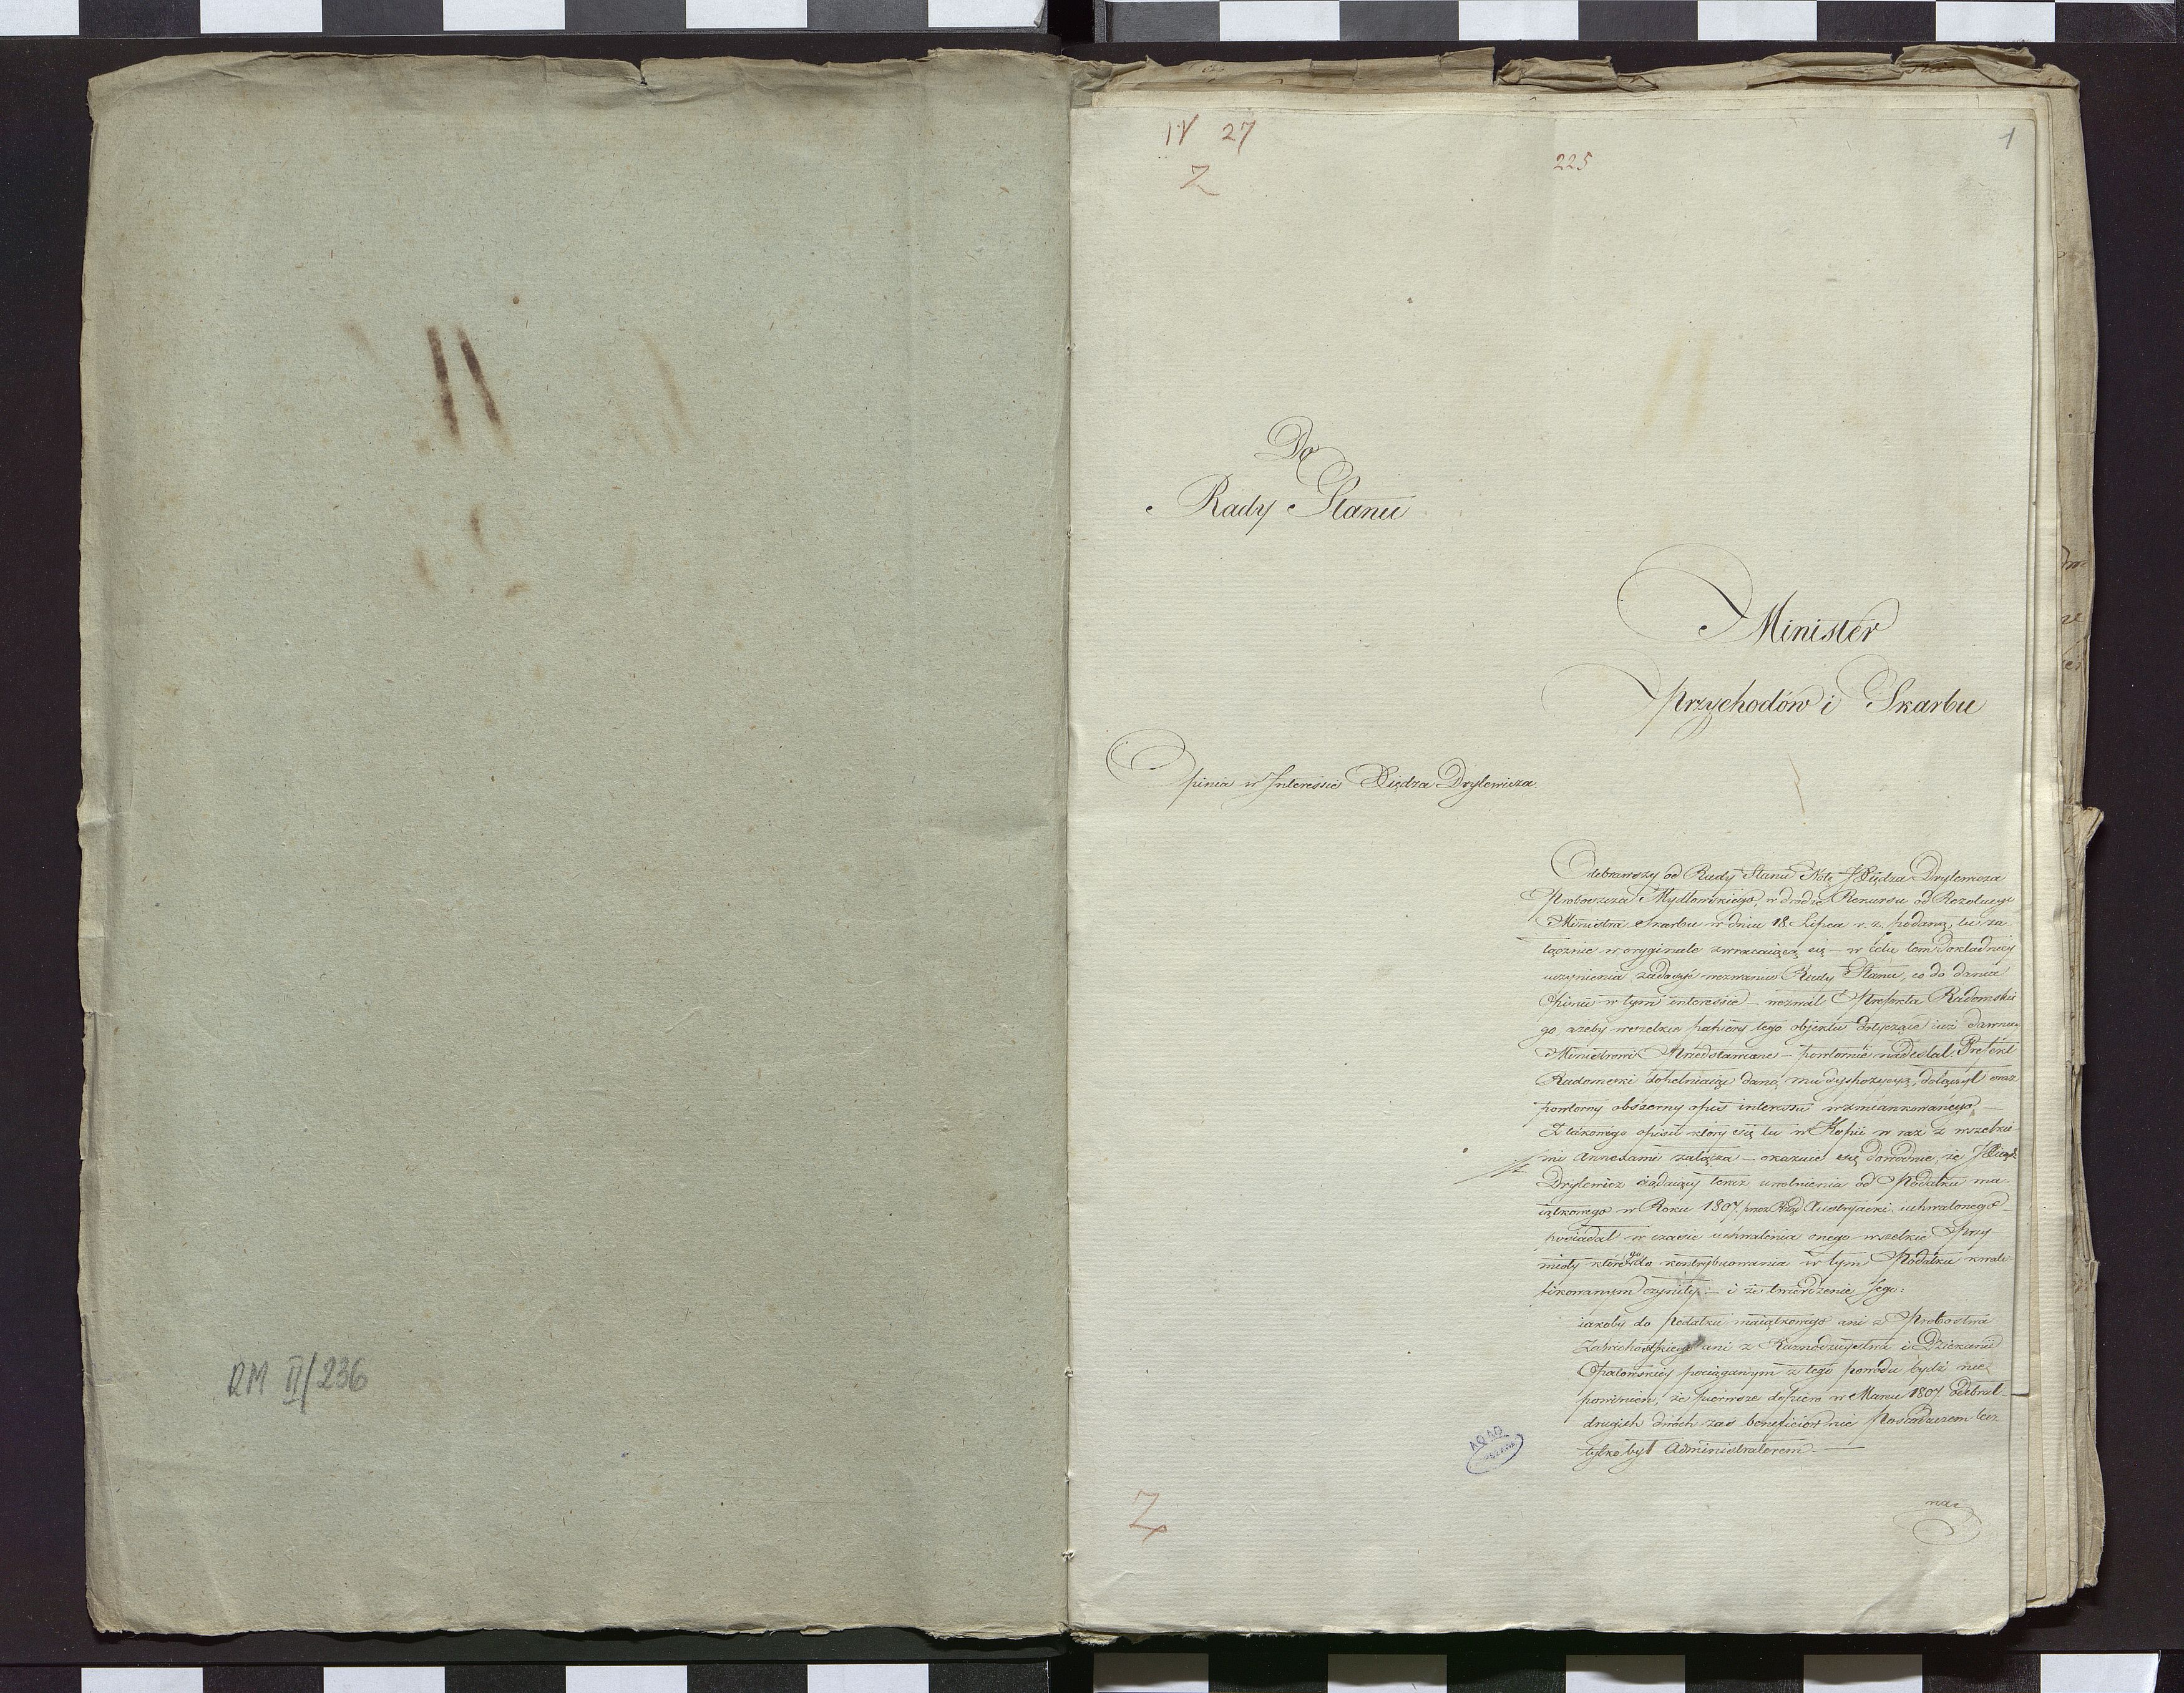 RM II/236
IV 27
Z
225
1
Do
Rady Stanu
Minister
Przychodów i Skarbu
Opinia w Interessie Xiędza Drylewicza.
Odebrawszy od Rady Stanu Notę JXiędza Drylewicza
Proboszcza Mydłowskiego, w drodze Rekursu od Rezolucyi
Ministra Skarbu w dniu 18. Lipca r. z. podaną, tu za-
łącznie w oryginale zwracaiącą się – w celu tem dokładniey
uczynienia zadosyć wezwaniu Rady Stanu, co do dania
Opinii w tym interessie – wezwał Prefekta Radomskie
go ażeby wszelkie papiery tego obiektu dotyczące iuż dawniey
Ministrowi Przedstawiane – powtórnie nadesłał. Prefekt
Radomski dopełniaiąc daną mu dyspozycyą, dołączył oraz
powtorny obszerny opis interessu wzmiankowanego –
Z takowego opisu który się tu w Kopii w raz z wszelkie-
mi Annexami załącza – okazuie się dowodnie, że JXiądz
Drylewicz żądaiący teraz uwolnienia od Podatku ma-
iątkowego w Roku 1807. przez Rząd Austryacki uchwalonego –
posiadał w czasie uchwalenia onego wszelkie Przy
mioty które go do kontrybuowania w tym Podatku kwali-
fikowanym czyniły – i że twierdzenie Jego:
iakoby do Podatku maiątkowego ani z Probostwa
Zawichostskiego ani z Kaznodzieystwa i Dziekanii
Opatowskiey pociąganym z tego powodu bydź nie
powinien, że pierwsze dopiero w Marcu 1807. odebrał –
drugich dwóch zaś beneficiow nie Possesorem lecz
tylko był Administratorem. –
na
Z